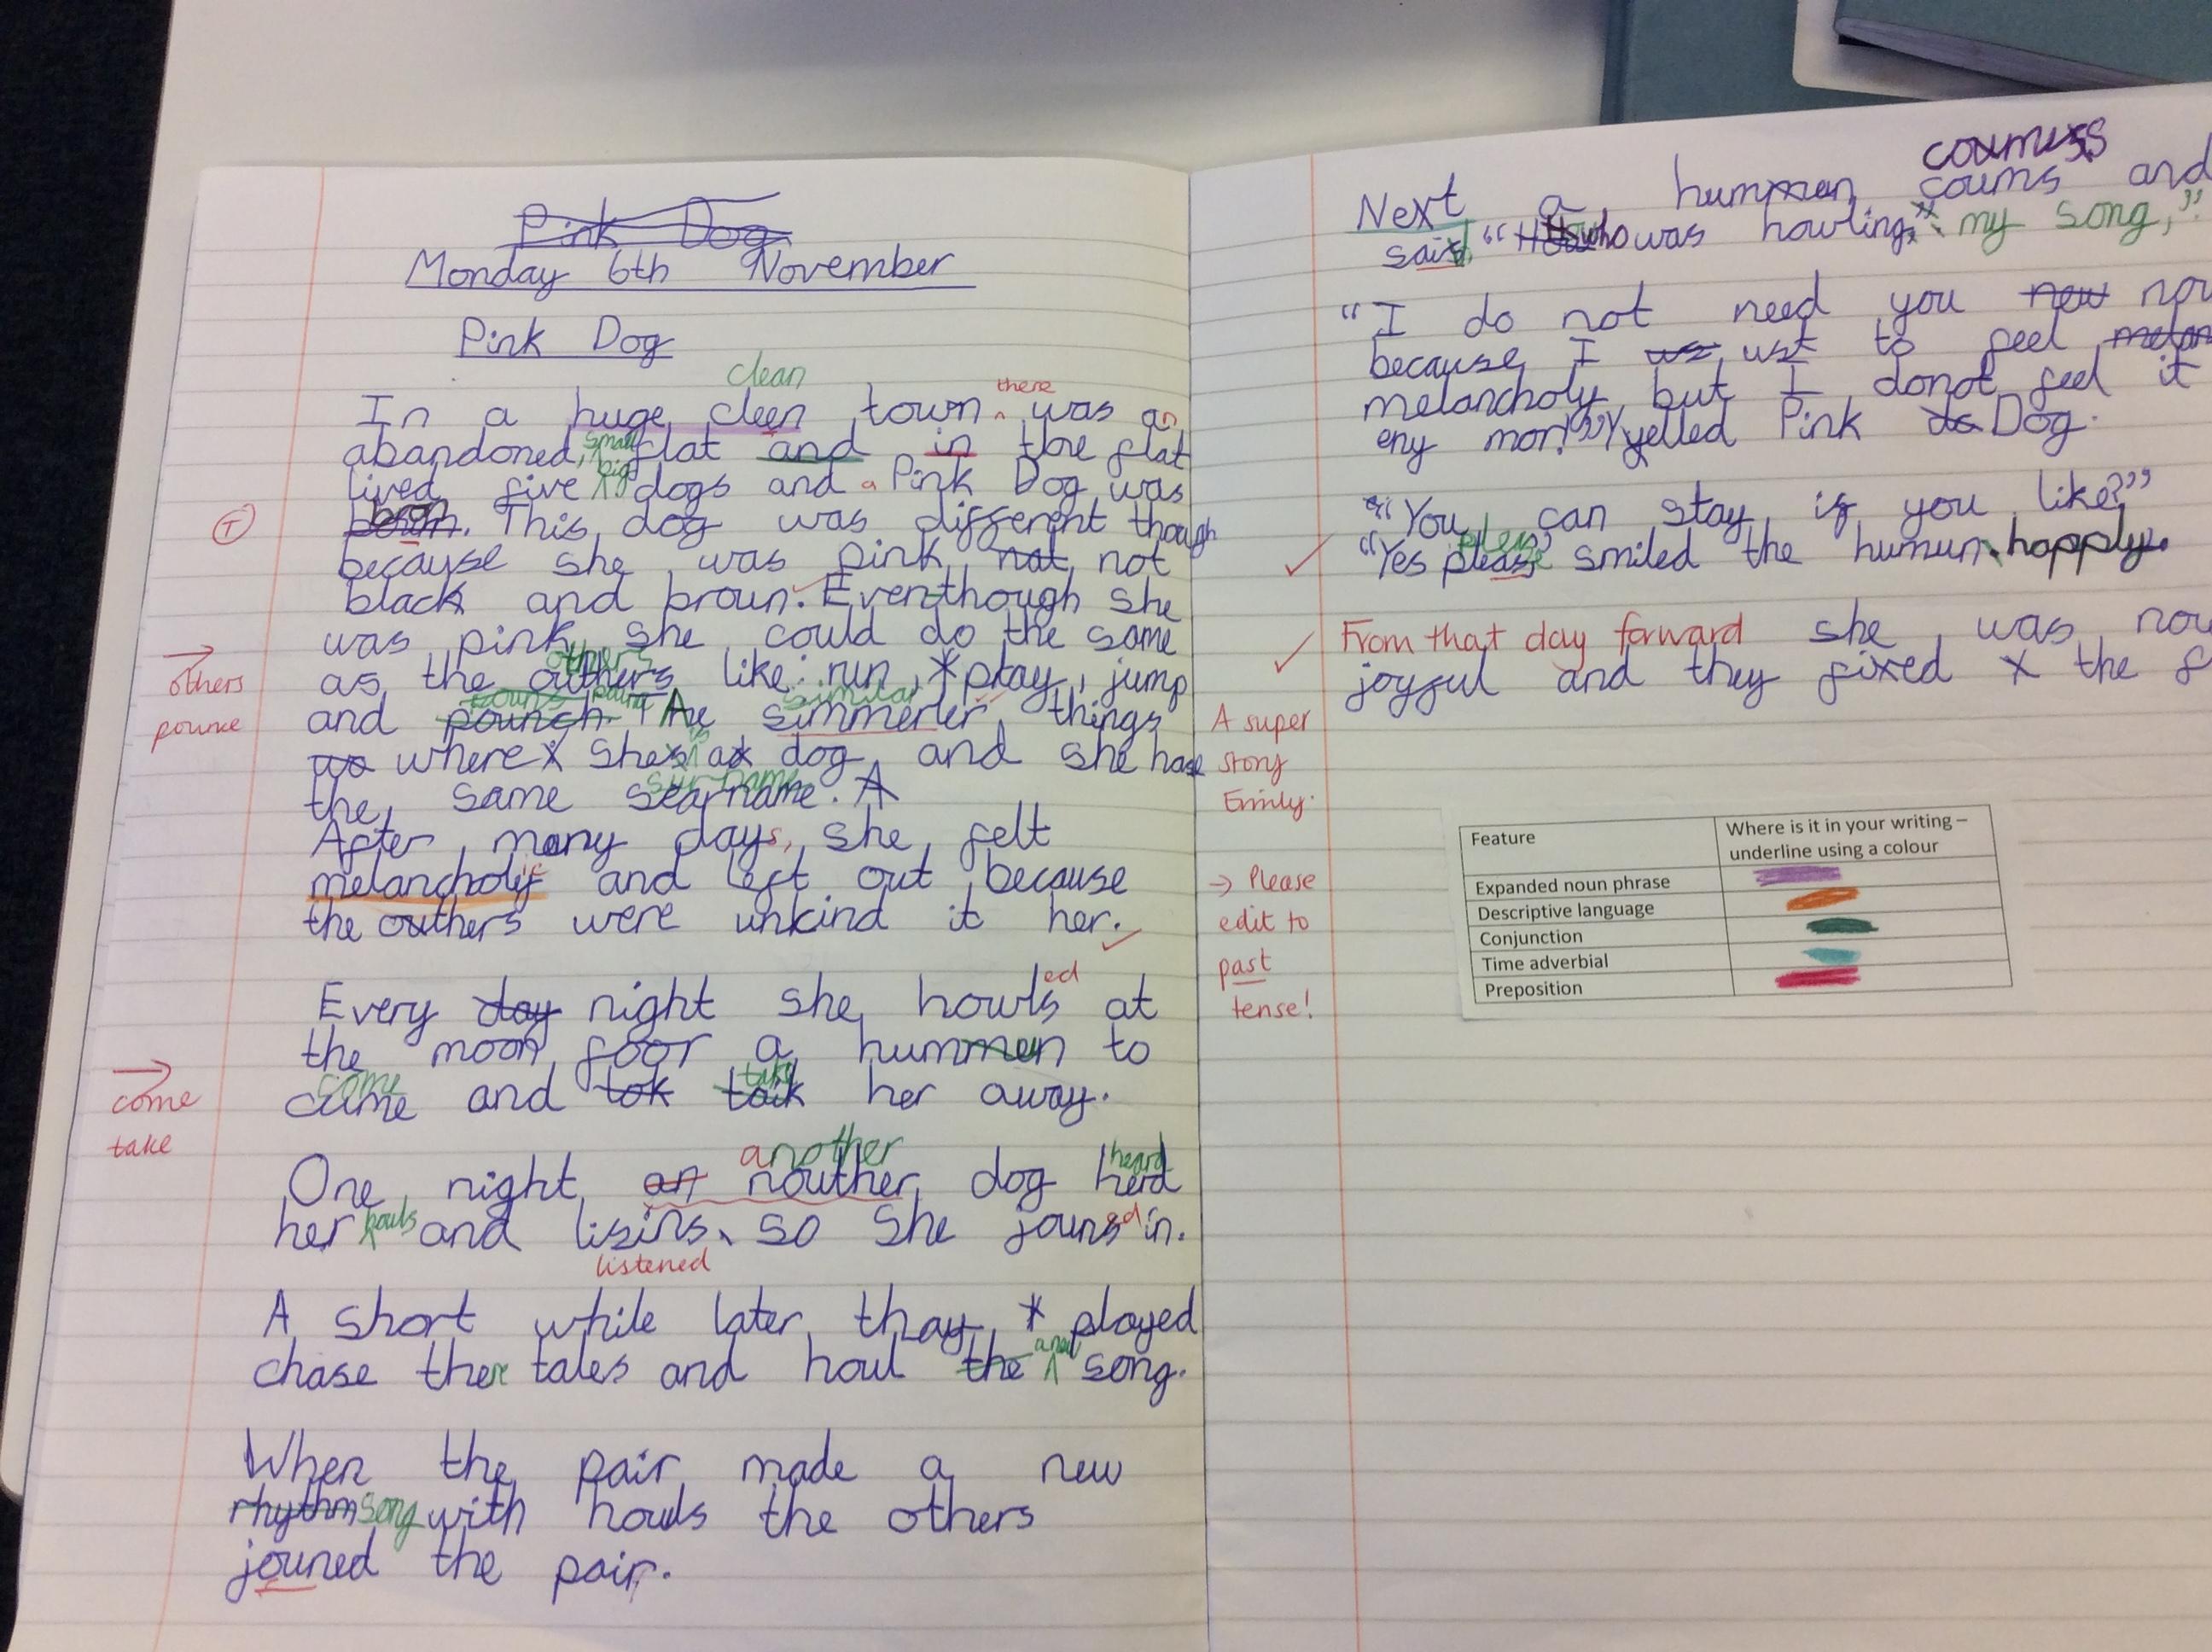 Pink Dog
Monday 6th November
Pink Dog
clean
there
In a huge cleen town ^ was an
small
abandoned, flat and in the flat
big
lived five dogs and a Pink Dog was
T
born. This dog was different though
because she was pink nat not
black and broun. Eventhough she
was pink she could do the same
others
as the outhers like: run, play, jump
similar
and pounch. The simmerler things
→
others
pounce
where she is a dog and she has
surname
the same searname. A
After many days, she felt
melancholy and left out because
the outhers were unkind it her.
ed
Every day night she howls at
the moon foor a hummun to
come
take
came and tok taik her away.
→
come
take
another
heard
One night an nouther dog herd
howls
her ^ and lisins, so she jouns ed in.
listened
A short while later thay played
and
chase there tales and houl the ^ song.
When the pair made a new
rhythm song with houls the others
jouned the pair.
coumes
Next a hummen coums and
said, "who was howling my song,"
"I do not need you new
because I ust to feel
melancholy but I donot feel it
eny mor!" yelled Pink do Dog.
"You can stay if you like?"
"Yes please" smiled the humun happly.
From that day forward she was
joyful and they fixed the
A super
story
Emily.
→ Please
edit to
past
tense!
Feature
Where is it in your writing –
underline using a colour
Expanded noun phrase
Descriptive language
Conjunction
Time adverbial
Preposition